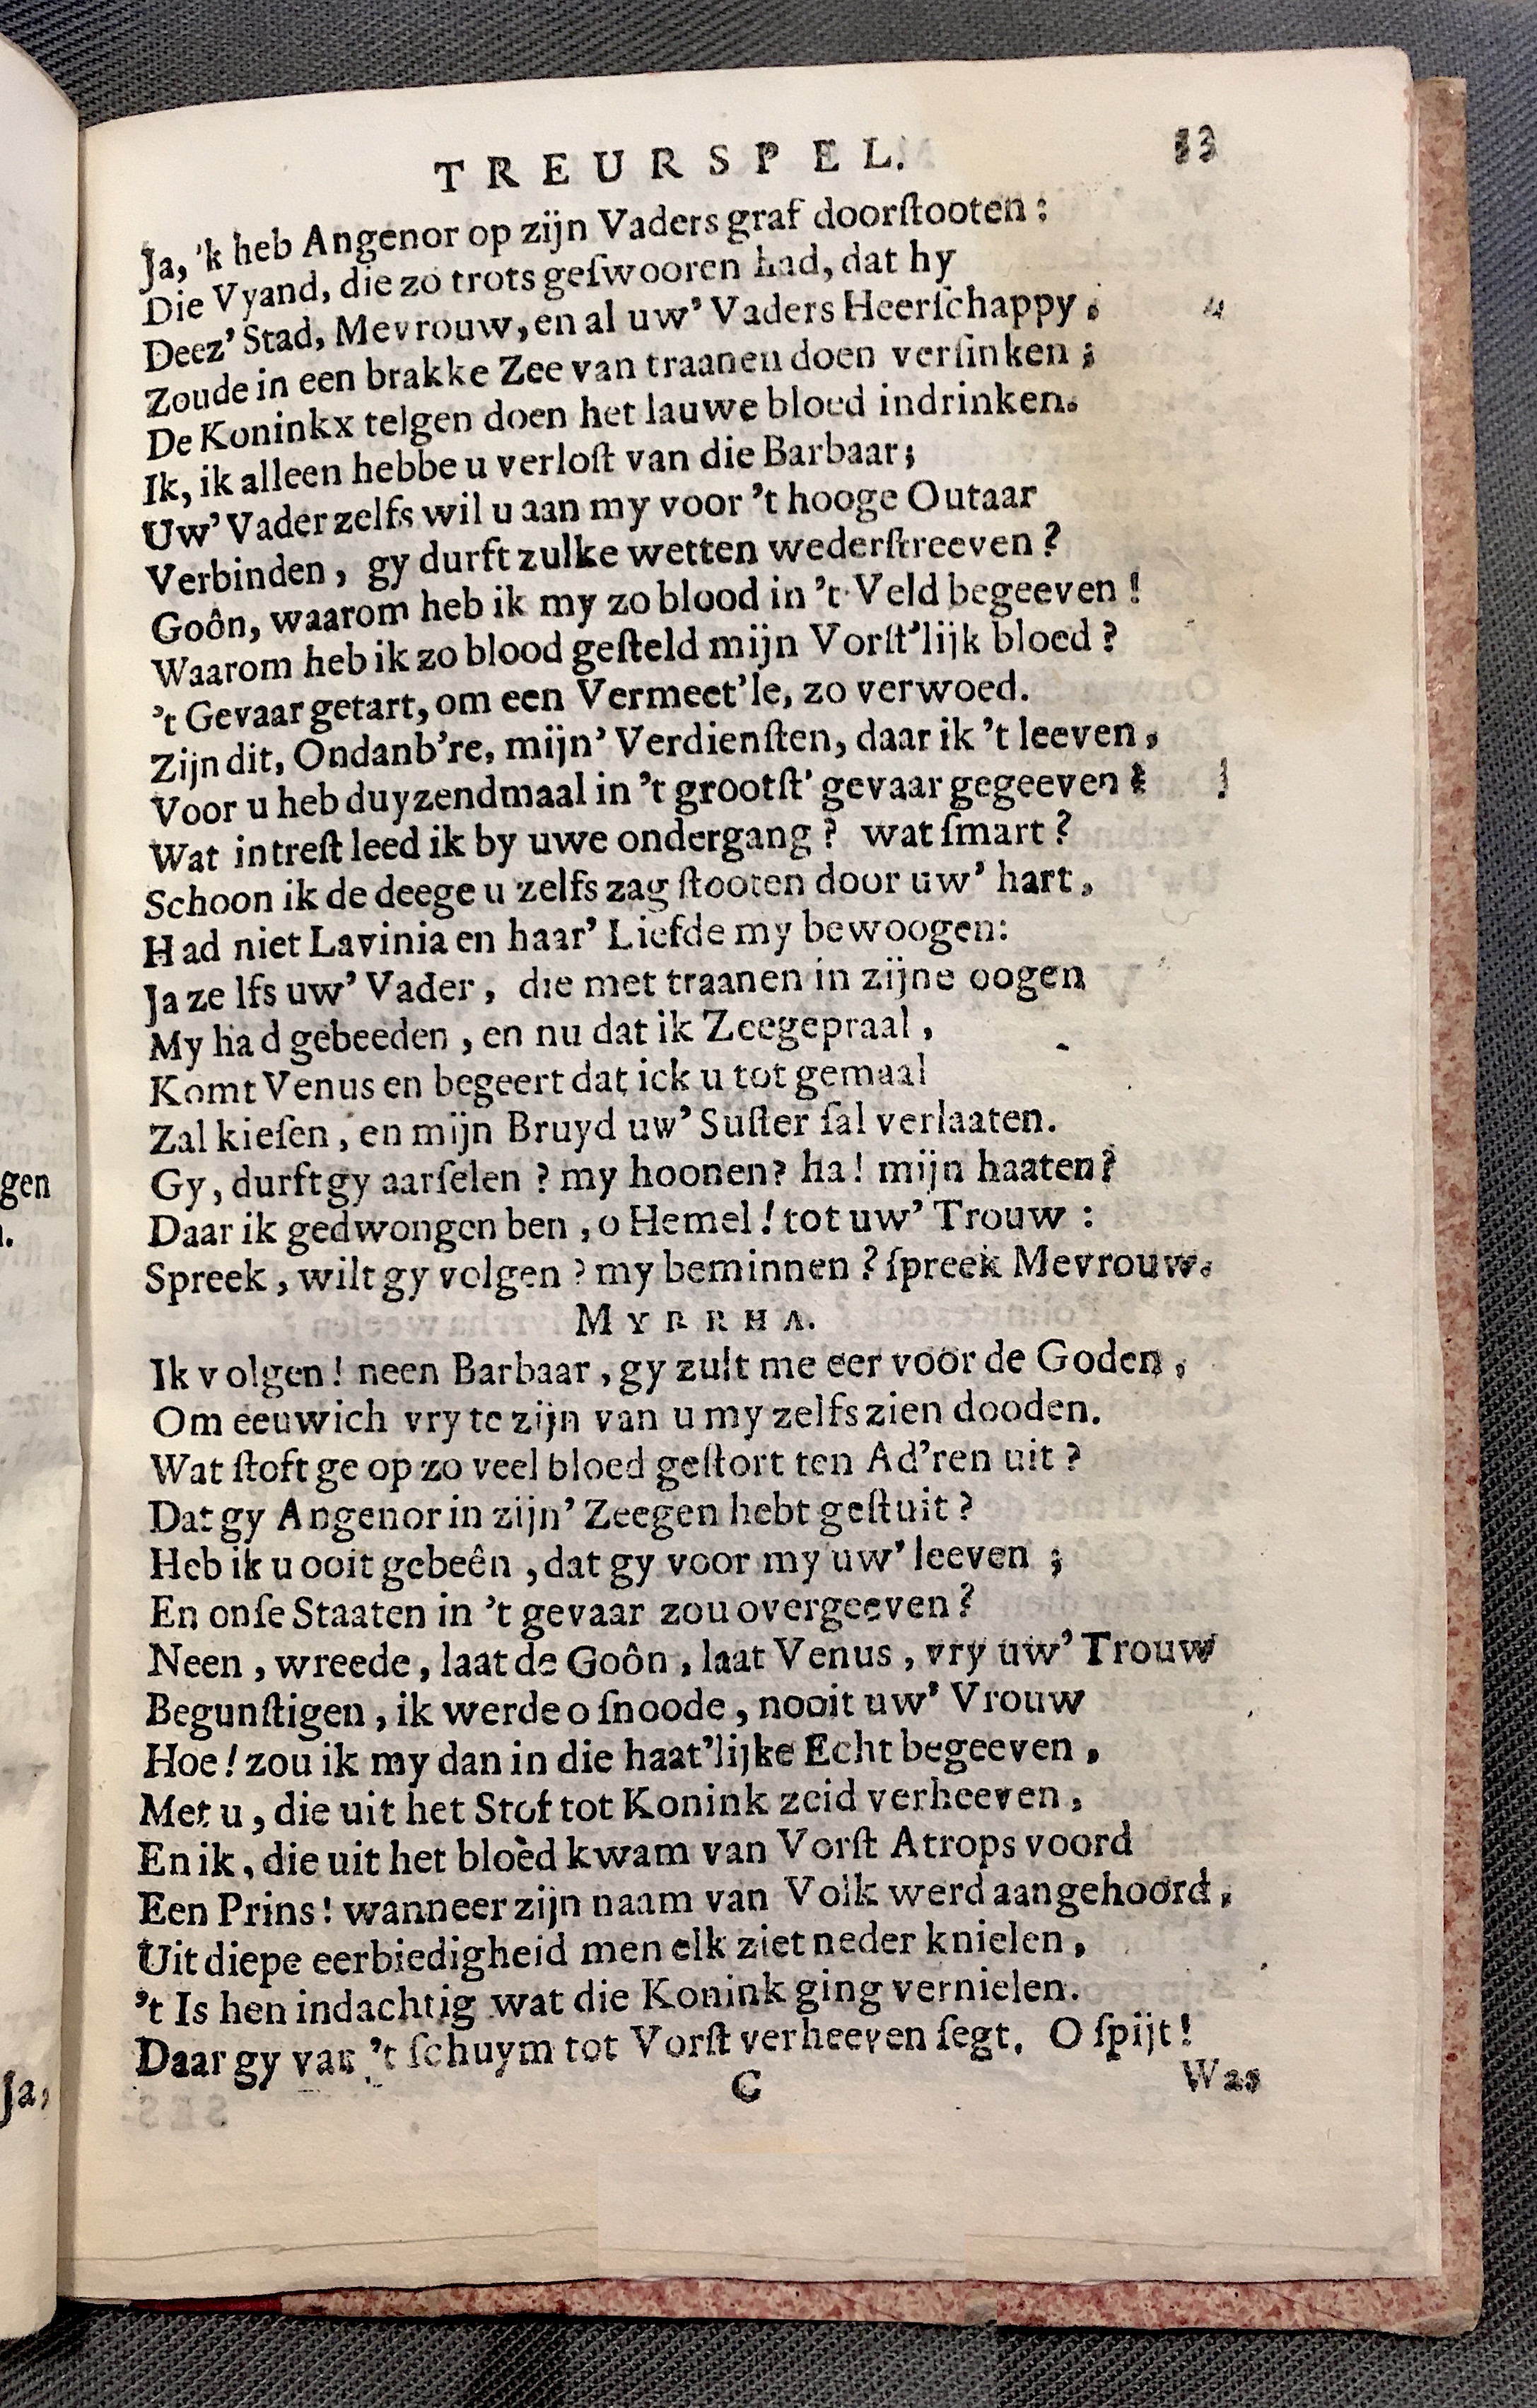 TREURSPEL. 33
Ja, 'k heb Angenor op zijn Vaders graf doorſtooten:
Die Vyand, die zo trots geſwooren had, dat hy
Deez' Stad, Mevrouw, en al uw' Vaders Heerſchappy;
Zoude in een brakke Zee van traanen doen verſinken;
De Koninkx telgen doen het lauwe bloed indrinken.
Ik, ik alleen hebbe u verloſt van die Barbaar;
Uw' Vader zelfs wil u aan my voor 't hooge Outaar
Verbinden, gy durft zulke wetten wederſtreeven?
Goôn, waarom heb ik my zo blood in 't Veld begeeven!
Waarom heb ik zo blood geſteld mijn Vorſt'lijk bloed?
't Gevaar getart, om een Vermeet'le, zo verwoed.
Zijn dit, Ondanb're, mijn' Verdienſten, daar ik 't leeven,
Voor u heb duyzendmaal in 't grootſt' gevaar gegeeven?
Wat intreſt leed ik by uwe ondergang? wat ſmart?
Schoon ik de deege u zelfs zag ſtooten door uw' hart,
Had niet Lavinia en haar' Liefde my bewoogen:
Ja ze lfs uw' Vader, die met traanen in zijne oogen
My had gebeeden, en nu dat ik Zeegepraal,
Komt Venus en begeert dat ick u tot gemaal
Zal kieſen, en mijn Bruyd uw' Suſter ſal verlaaten.
Gy, durft gy aarſelen? my hoonen? ha! mijn haaten?
Daar ik gedwongen ben, o Hemel! tot uw' Trouw:
Spreek, wilt gy volgen? my beminnen? ſpreek Mevrouw.
MYRRHA.
Ik volgen! neen Barbaar, gy zult me eer voor de Goden,
Om eeuwich vry te zijn van u my zelfs zien dooden.
Wat ſtoft ge op zo veel bloed geſtort ten Ad'ren uit?
Dat gy Angenor in zijn' Zeegen hebt geſtuit?
Heb ik u ooit gebeên, dat gy voor my uw' leeven;
En onſe Staaten in 't gevaar zou overgeeven?
Neen, wreede, laat de Goôn, laat Venus, vry uw' Trouw
Begunſtigen, ik werde o ſnoode, nooit uw' Vrouw
Hoe! zou ik my dan in die haat'lijke Echt begeeven,
Met u, die uit het Stof tot Konink zeid verheeven,
En ik, die uit het bloed kwam van Vorſt Atrops voord
Een Prins! wanneer zijn naam van Volk werd aangehoord,
Uit diepe eerbiedigheid men elk ziet neder knielen,
't Is hen indachtig wat die Konink ging vernielen.
Daar gy van 't ſchuym tot Vorſt verheeven ſegt. O ſpijt!
C Was
gen
Ja,